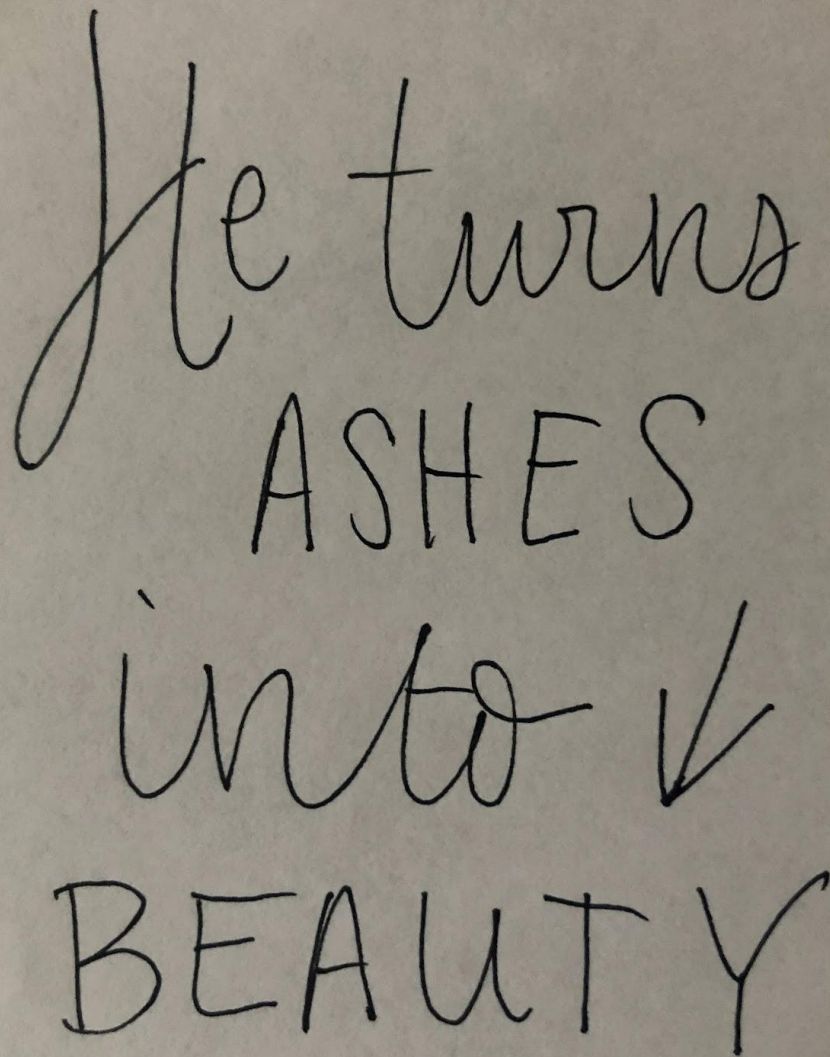 He turns
ASHES
into ↙
BEAUTY